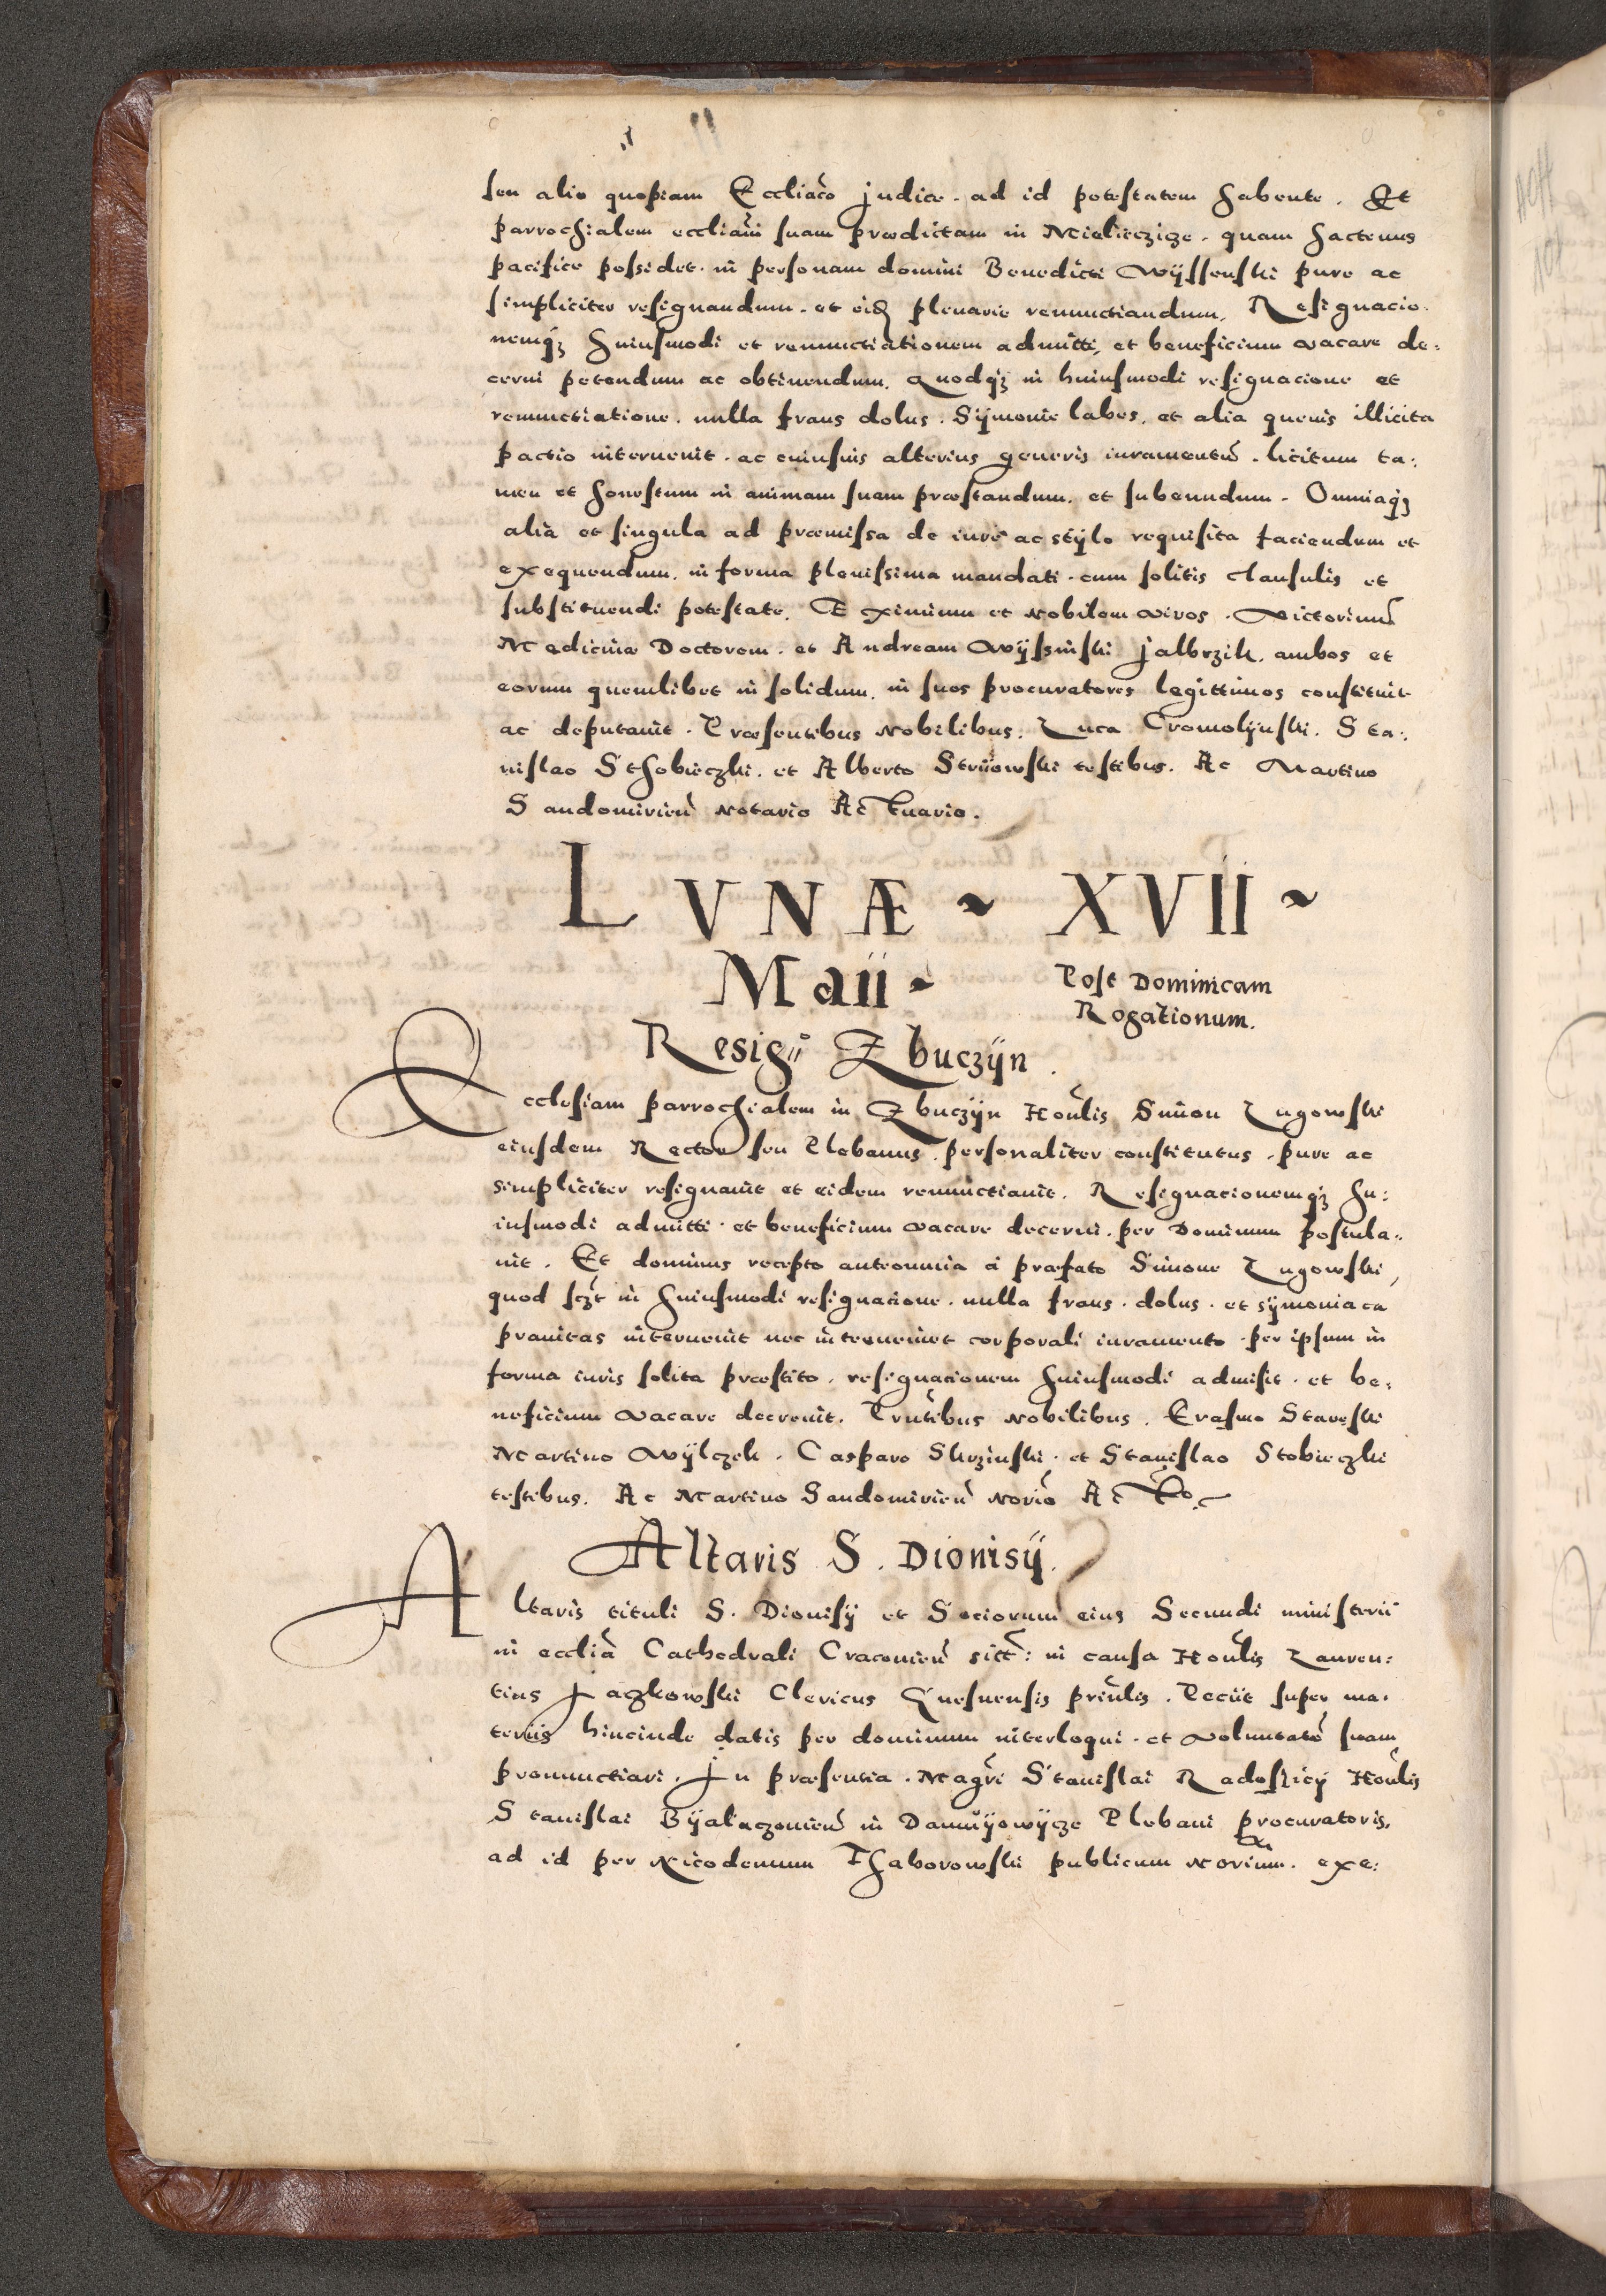 seu alio quopiam Eccliaco judice. ad id potestatem habente. Et
parrochialem eccliam suam prædictam in Mielieczicze. quam hactenus
pacifice possidet. in personam domini Benedicti Wyssenski pure ac
simpliciter resignandum. et eidem plenarie renunctiandum. Resignacio
nemq3 huiusmodi et renunctiationem admitti, et beneficium vacare de:
cerni petendum ac obtinendum. Quodq3 in huiusmodi resignacione et
renunctiatione. nulla fraus dolus. Symonie labes. et alia quevis illicita
pactio intervenit. ac cuiusvis alterius generis iuramentū. licitum ta:
men et honestum in animam suam præstandum. et subeundum. Omniaq3
alia et singula ad præmissa de iure ac stylo requisita faciendum et
exequendum. in forma plenissima mandati. cum solitis clausulis et
substituendi potestate. Eximium et Nobilem viros. Victorinum
Medicinæ Doctorem. et Andream Wyssinski Jalbrzik. ambos et
eorum quemlibet in solidum. in suos procuratores legittimos constituit
ac deputavit. Præsentibus Nobilibus. Luca Cromolynski. Sta:
nislao Sthobieczki. et Alberto Struowski testibus. Ac Martino
Sandomirien Notario Actuario.
LVNÆ ~ XVII ~
Maii ~ Post Dominicam
Rogationum.
Resig Zbuczyn.
Ecclesiam parrochialem in Zbuczyn Honlis Simon Lugowski
eiusdem Rector seu Plebanus. personaliter constitutus. pure ac
simpliciter resignavit et eidem renunctiavit. Resignacionemq3 hu:
iusmodi admitti. et beneficium vacare decerni. per Dominum postula:
vit. Et dominus recepto ante omnia a præfato Simone Lugowski,
quod sczt in huiusmodi resignacione. nulla fraus. dolus. et symoniaca
pravitas intervenit nec interveniet corporali iuramento. per ipsum in
forma iuris solita præstito. resignacionem huiusmodi admisit. et be:
neficium vacare decrevit. Prntibus Nobilibus. Erasmo Stareski
Martino Wylczek. Casparo Skrzinski. et Stanislao Stobieczki
testibus. Ac Martino Sandomirien Norio Acto.
Altaris S. Dionisÿ.
Altaris tituli S. Dionisÿ et Sociorum eius Secundi ministerii
in ecclia Cathedrali Cracovien sitt: in causa Honlis Lauren:
tius Jaczkowski Clericus Gnesnensis principlis. Peciit super ma:
teriis hincinde datis per dominum interloqui. et voluntatē suam
pronunctiari. In præsentia. Magri Stanislai Radoszicÿ Honlis
Stanislai Byalaczovien in Plebani procuratoris.
ad id per Nicodemum Thaborowski publicum Norium. exe: